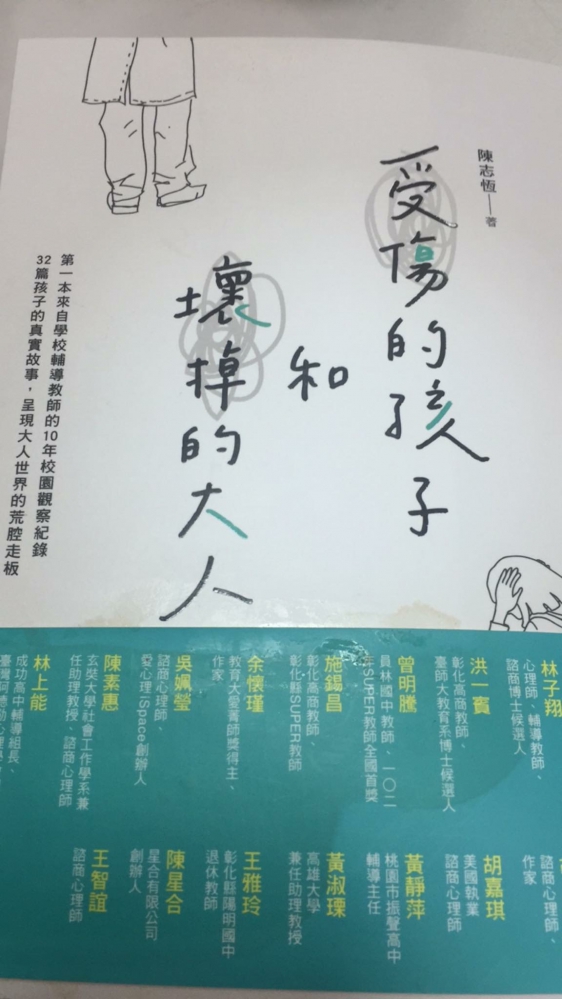 陳志恆──著
受傷的孩子
和
壞掉的大人
第一本來自學校輔導教師的10年校園觀察紀錄
32篇孩子的真實故事，呈現大人世界的荒腔走板
林子翔
心理師、輔導教師、
諮商博士候選人
洪一賓
彰化高商教師、
臺師大教育系博士候選人
曾明騰
員林國中教師、一〇二
年SUPER教師全國首獎
施錫昌
彰化高商教師、
彰化縣SUPER教師
余懷瑾
教育大愛菁師獎得主、
作家
吳姵瑩
諮商心理師、
愛心理iSpace創辦人
陳素惠
玄奘大學社會工作學系兼
任助理教授、諮商心理師
林上能
成功高中輔導組長、
諮商心理師、
作家
胡嘉琪
美國執業
諮商心理師
黃靜萍
桃園市振聲高中
輔導主任
黃淑瓅
高雄大學
兼任助理教授
王雅玲
彰化縣陽明國中
退休教師
陳星合
星合有限公司
創辦人
王智誼
諮商心理師